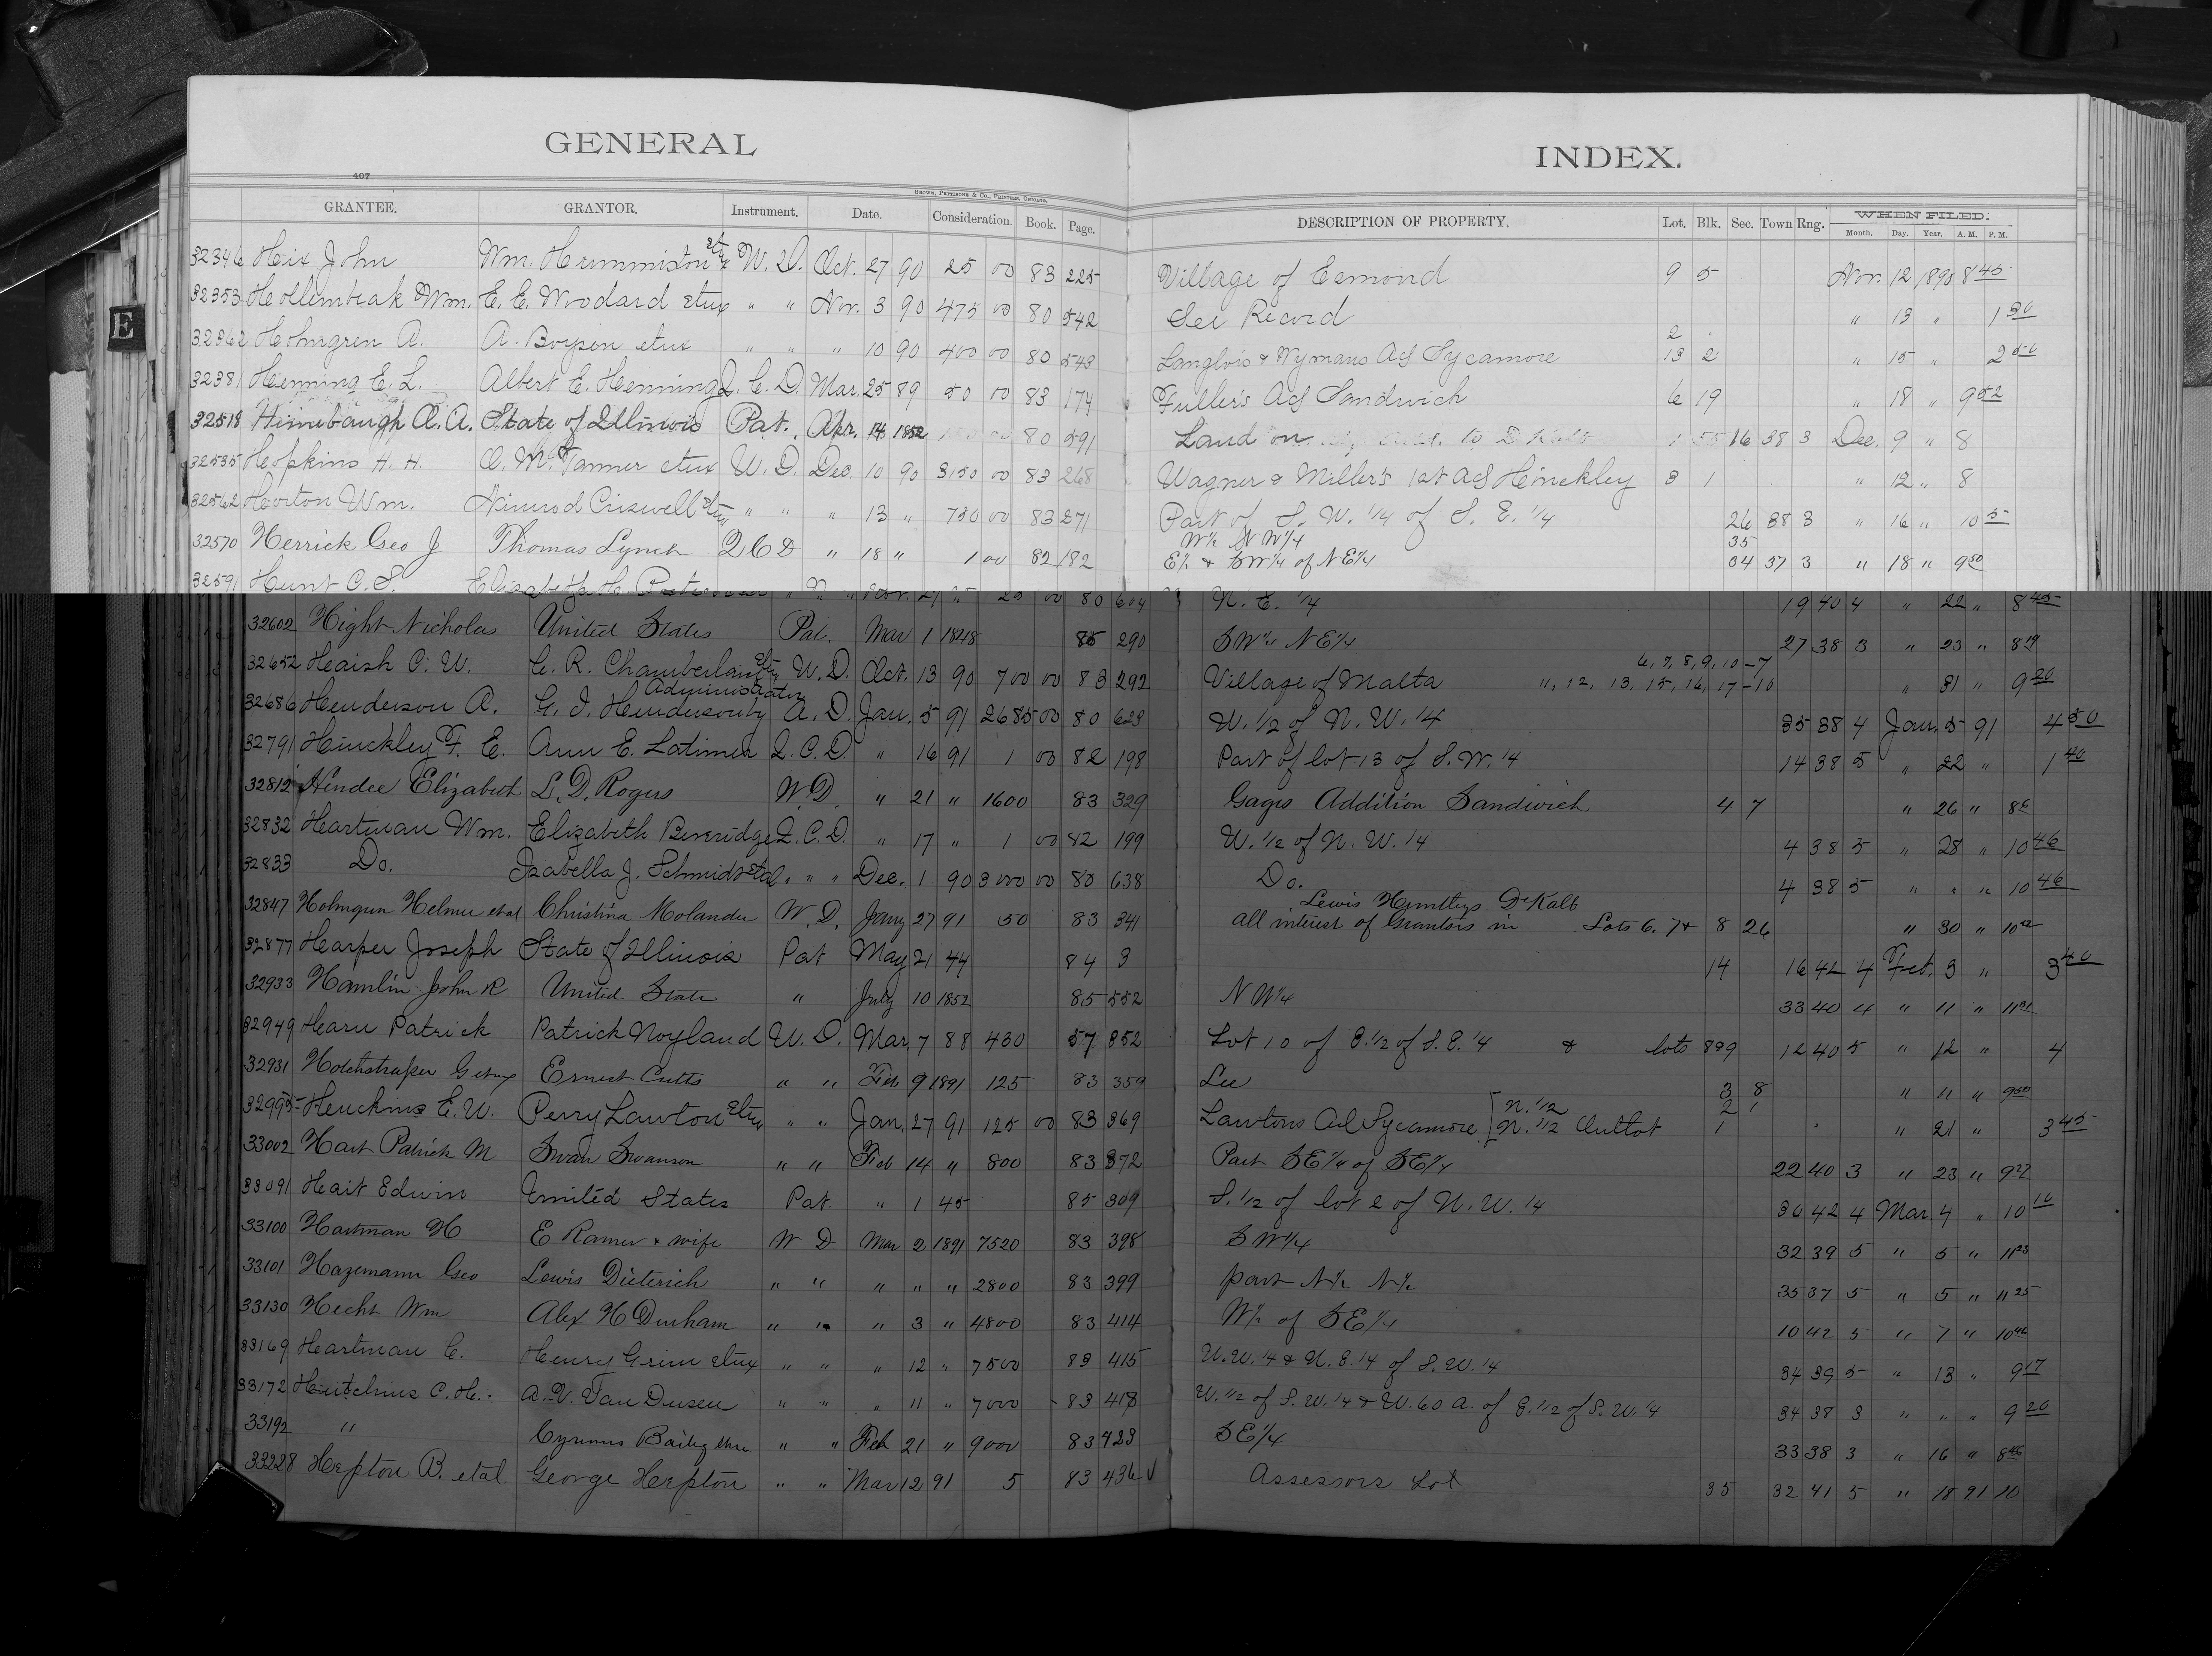 GENERAL INDEX.
407
Brown, Pettibone & Co., Printers, Chicago.
GRANTEE. GRANTOR. Instrument. Date. Consideration. Book. Page. DESCRIPTION OF PROPERTY. Lot. Blk. Sec. Town Rng. WHEN FILED. Month. Day. Year. A. M. P. M.
E
32346 Hix John Wm. Hummiston etux W. D. Oct. 27 90 25 00 83 225 Village of Esmond 9 5 Nov. 12 1890 8 45
32353 Hollembeak Wm. E. E. Woodard etux " " Nov. 3 90 475 00 80 542 See Record " 13 " 1 30
32362 Holmgren A. A. Boyson etux " " " 10 90 400 00 80 543 Langlois & Wymans Ad Sycamore 2 13 2 " 15 " 2
32381 Henning E. L. Albert E. Henning Q. C. D. Mar. 25 89 50 00 83 174 Fuller's Ad Sandwich 6 19 " 18 " 9 52
32518 Himebaugh A. A. State of Illinois Pat. Apr. 14 1852 80 591 16 38 3 Dec. 9 " 8
32535 Hopkins H. H. O. M. Tanner etux W. D. Dec. 10 90 3150 00 83 268 Wagner & Miller's 1st Ad Hinckley 3 1 " 12 " 8
32562 Horton Wm. Nimrod Criswell etux " " " 13 " 750 00 83 271 Part of S. W. 1/4 of S. E. 1/4 26 38 3 " 16 " 10 5
32570 Herrick Geo J Thomas Lynch Q C D " 18 " 1 00 82 182 W1/2 NW1/4 35
E1/2 & SW1/4 of NE1/4 34 37 3 " 18 " 9 50
32591 Hunt C. S. 80 604 N. E. 1/4 19 40 4 " 22 " 8 45
32602 Hight Nicholas United States Pat. Mar 1 1848 85 290 SW1/4 NE1/4 27 38 3 " 23 " 8 19
32652 Haish C. W. C. R. Chamberlain etux W. D. Oct. 13 90 700 00 83 292 Village of Malta 6, 7, 8, 9, 10 - 7
11, 12, 13, 15, 16, 17 - 10 " 31 " 9 20
32686 Henderson A. G. I. Henderson by Administrator A. D. Jan. 5 91 2685 00 80 629 W. 1/2 of N. W. 1/4 35 38 4 Jan. 5 91 4 50
32791 Hinckley F. E. Ann E. Latimer Q. C. D. " 16 91 1 00 82 198 Part of lot 13 of S. W. 1/4 14 38 5 " 22 " 1 40
32812 Hendee Elizabeth L. D. Rogers W. D. " 21 " 1600 83 329 Gages Addition Sandwich 4 7 " 26 " 8
32832 Hartman Wm. Elizabeth Beveridge Q. C. D. " 17 " 1 00 82 199 W. 1/2 of N. W. 1/4 4 38 5 " 28 " 10 46
32833 Do. Izabella J. Schmidt etal. " " Dec. 1 90 3000 00 80 638 Do. 4 38 5 " " " 10 46
32847 Holmgren Helmer etal Christina Molander W. D. Jany 27 91 50 83 341 Lewis Huntleys DeKalb
all interest of Grantors in Lots 6. 7 & 8 26 " 30 " 10
32877 Harper Joseph State of Illinois Pat May 21 44 84 3 14 16 42 4 Feb. 3 " 3 40
32933 Hamlin John R United States " July 10 1852 85 552 NW1/4 33 40 4 " 11 " 11
32949 Harn Patrick Patrick Noyland W. D. Mar. 7 88 430 57 352 Lot 10 of E. 1/2 of S. E. 1/4 & lots 8 & 9 12 40 5 " 12 " 4
32931 Ernest Cutts " " Feb 9 1891 125 83 359 Lee 3 8 " 11 " 9 50
32995 Huckins E. W. Perry Lawton etux " " Jan. 27 91 125 00 83 369 Lawtons Ad Sycamore N. 1/2 2 1
N. 1/2 Outlot 1 " 21 " 3 45
33002 Hart Patrick M Swan Swanson " " Feb 14 " 800 83 372 Part SE1/4 of SE1/4 22 40 3 " 23 " 9 27
33091 Hait Edwin United States Pat. " 1 45 85 309 S. 1/2 of lot 2 of N. W. 1/4 30 42 4 Mar 4 " 10 10
33100 Hartman H E Ramer & wife W D Mar 2 1891 7520 83 398 SW1/4 32 39 5 " 5 " 11
33101 Hazemann Geo Lewis Dieterich " " " " " 2800 83 399 part N1/2 N1/2 35 37 5 " 5 " 11 25
33130 Hecht Wm Alex H Durham " " " 3 " 4800 83 414 W1/2 of SE1/4 10 42 5 " 7 " 10
33169 Hartman C. Henry Grim etux " " " 12 " 7500 83 415 N. W. 1/4 & N. E. 1/4 of S. W. 1/4 34 39 5 " 13 " 9 17
33172 Hutchins C. H. A. V. Van Dusen " " " 11 " 7000 83 418 W. 1/2 of S. W. 1/4 & W. 60 A. of E. 1/2 of S. W. 1/4 34 38 3 " " " 9 20
33192 " Cyrenus Bailey " " Feb 21 " 9000 83 423 SE1/4 33 38 3 " 16 " 8
33228 Hepton B. etal George Hepton " " Mar 12 91 5 83 436 Assessors Lot 35 32 41 5 " 18 91 10